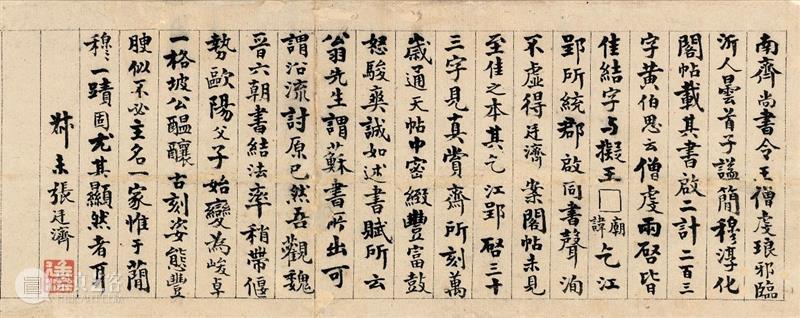 南齊尚書令王僧虔琅邪臨
沂人曇首子謚簡穆淳化
閣帖載其書啟二計二百三
字黃伯思云僧虔兩啓皆
佳結字与擬王□廟諱乞江
郢所統郡啟同書聲洵
不虛得廷濟案閣帖未見
至佳之本其乞江郢啓三十
三字見真賞齋所刻萬
歲通天帖中密緻豐富鼓
怒駿爽誠如述書賦所云
翁先生謂蘇書所出可
謂沿流討原已然吾觀魏
晉六朝書結法率稍帶偃
勢歐陽父子始變為峻卓
一格坡公醞釀古刻姿態豐
腴似不必主名一家惟于簡
穆一蹟固尤其顯然者耳
叔未張廷濟